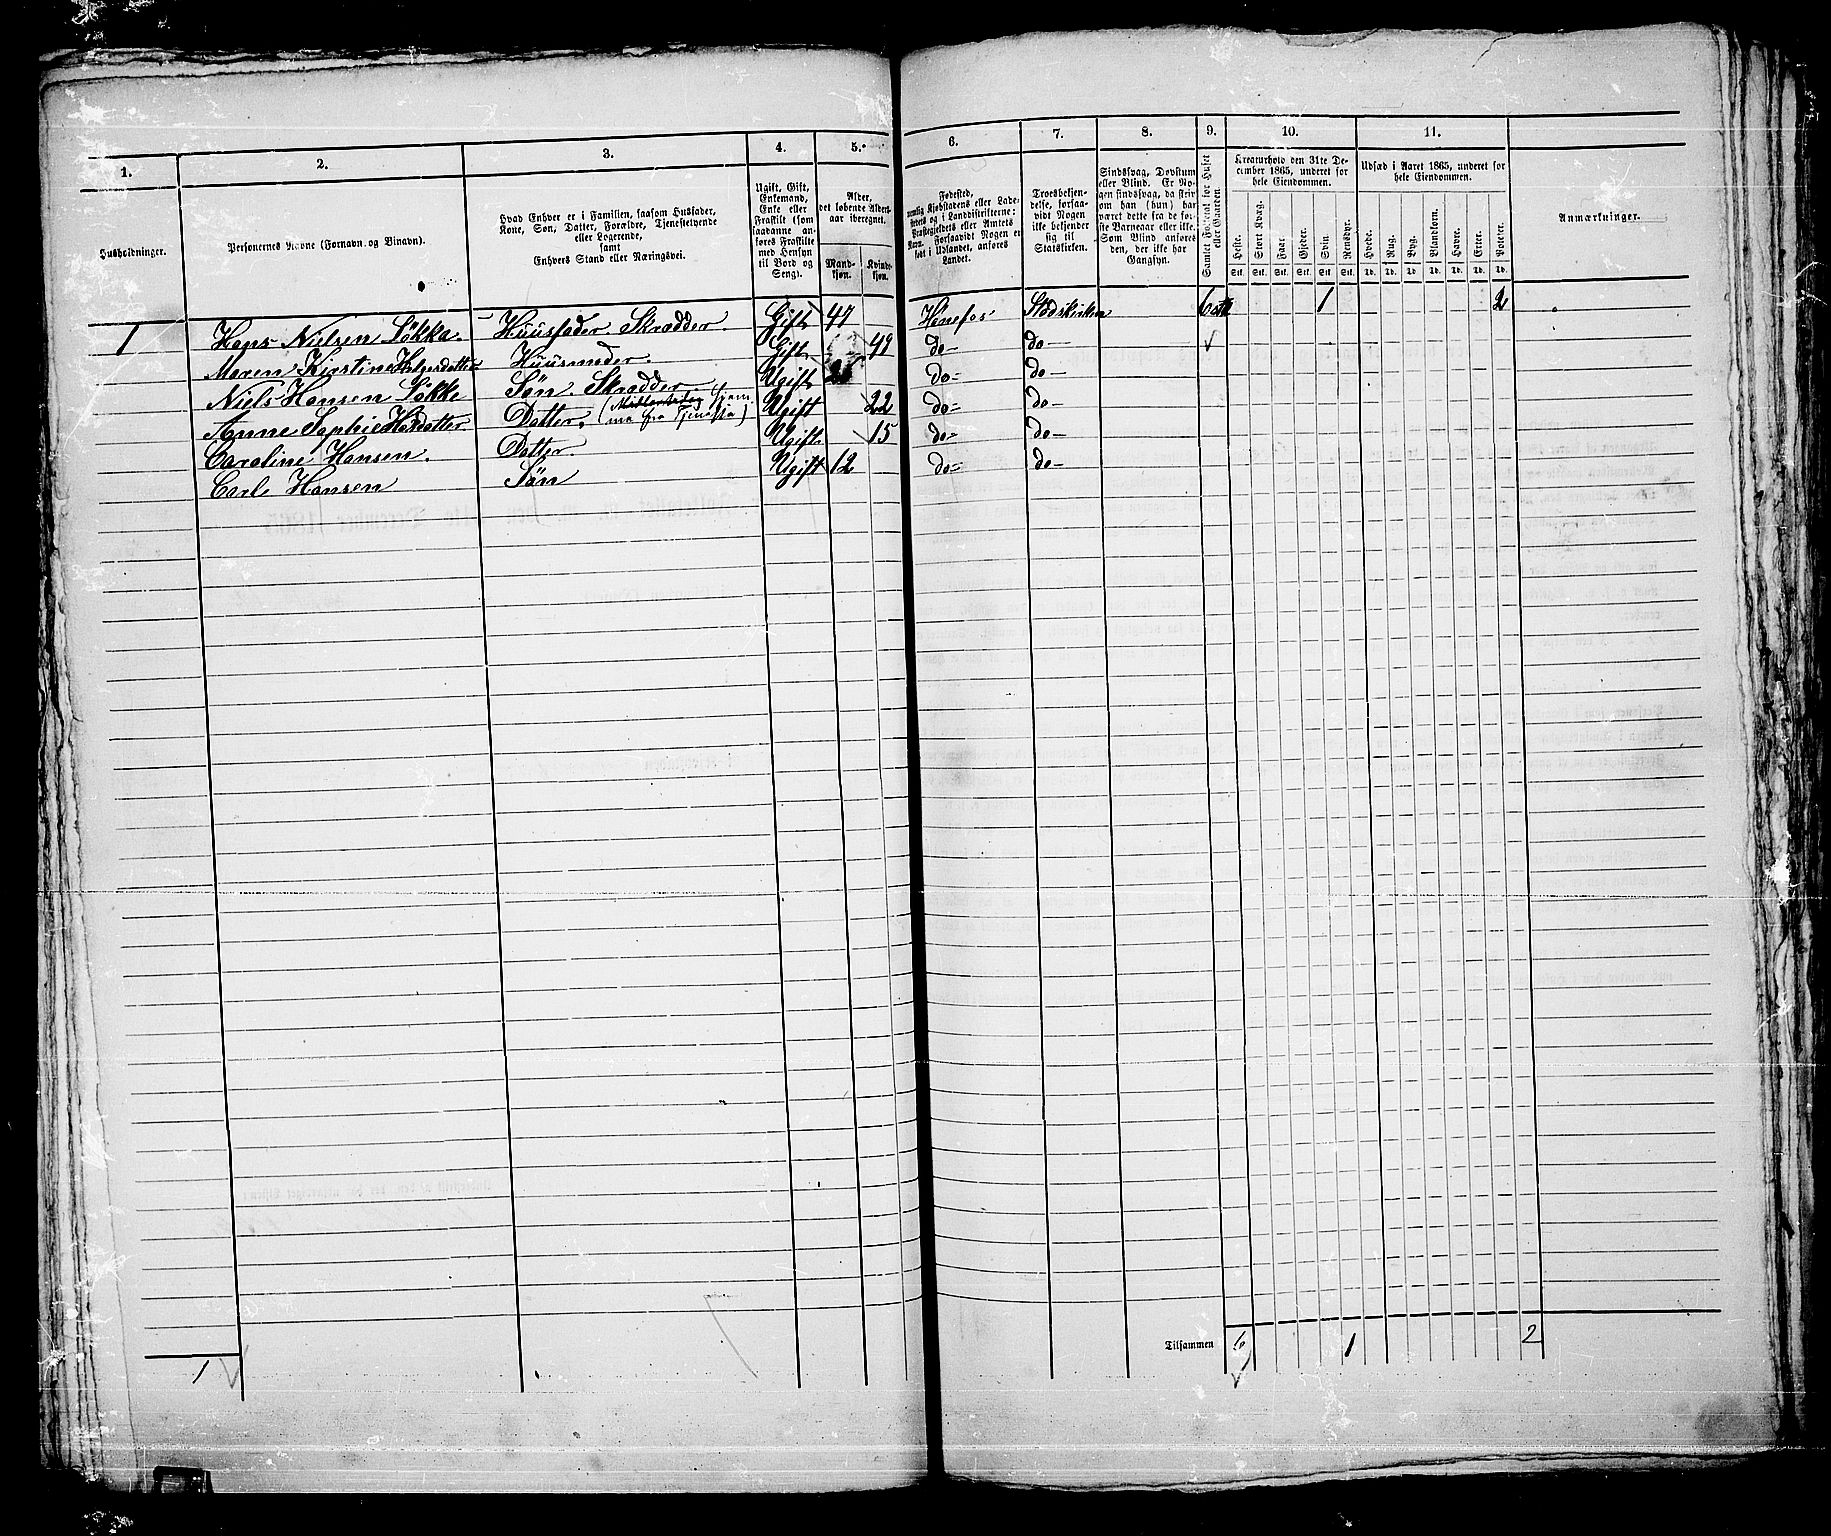 1. 2. 3. 4. 5. 6. 7. 8. 9. 10. 11.
Husholdninger.
Personernes Navne (Fornavn og Binavn).
Hvad Enhver er i Familien, saasom Husfader,
Kone, Søn, Datter, Forældre, Tjenestetyende
eller Logerende,
samt
Enhvers Stand eller Næringsvei.
Ugift, Gift,
Enkemand,
Enke eller
Fraskilt (som
saadanne an-
føres Fraskilte
med Hensyn
til Bord og
Seng).
Alder,
det løbende Alders-
aar iberegnet.
Mand-
kjøn.
Kvinde-
kjøn.
Fødested,
nemlig Kjøbstadens eller Lade-
stedets og i Landdistrikterne:
Præstegjeldets eller Amtets
Navn. Forsaavidt Nogen er
født i Udlandet, anføres
Landet.
Troesbekjen-
delse, forsaa-
vidt Nogen
ikke bekjender
sig til
Statskirken.
Sindssvag, Døvstum
eller Blind. Er No-
gen sindssvag, da skriv
om han (hun) har
været dette fra de før-
ste Barneaar eller ikke.
Som Blind anføres
den, der ikke har
Gangsyn.
Samlet Folketal for Huset
eller Gaarden.
Kreaturhold den 31te De-
cember 1865, underet for
hele Eiendommen.
Heste. Stort Kvæg. Faar. Gjeder. Svin. Rensdyr.
Stk. Stk. Stk. Stk. Stk. Stk.
Udsæd i Aaret 1865, underet for
hele Eiendommen.
Hvede. Rug. Byg. Blandkorn. Havre. Erter. Poteter.
Td. Td. Td. Td. Td. Td. Td.
Anmærkninger.
1 Hans Nielsen Løkka. Huusfader. Skrædder. Gift 47 Hønefos Statskirken 6 1 2
Maren Kirstine Helgesdatter Huusmoder. Gift 49 do- do-
Niels Hansen Løkke Søn. Skrædder Ugift do- do-
Anne Sophie Hansdatter Datter. Ugift 22 do- do-
Caroline Hansen. Datter Ugift 15 do- do-
Carl Hansen Søn Ugift 12 do- do-
Tilsammen 6 1 2
1